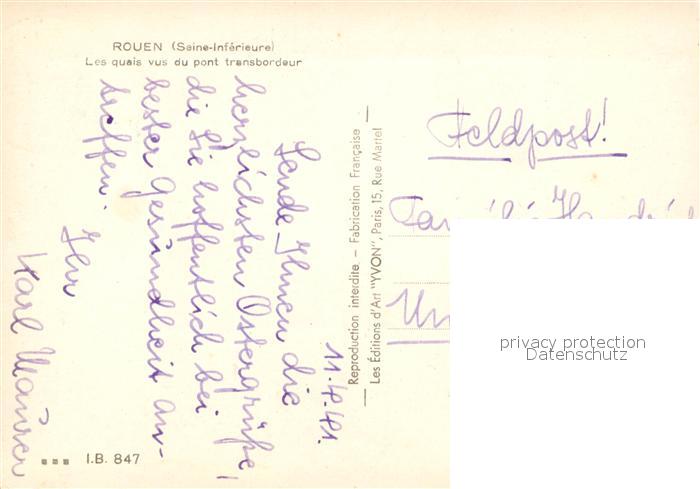 ROUEN (Seine-Inférieure)
Les quais vus du pont transbordeur
11.4.41.
Sende Ihnen die
herzlichsten Ostergrüße,
die Sie hoffentlich bei
bester Gesundheit an-
treffen.
Ihr
Karl Maurer
I.B. 847
Reproduction interdite. — Fabrication Française
Les Éditions d'Art "YVON", Paris, 15, Rue Martel
Feldpost!
privacy protection
Datenschutz